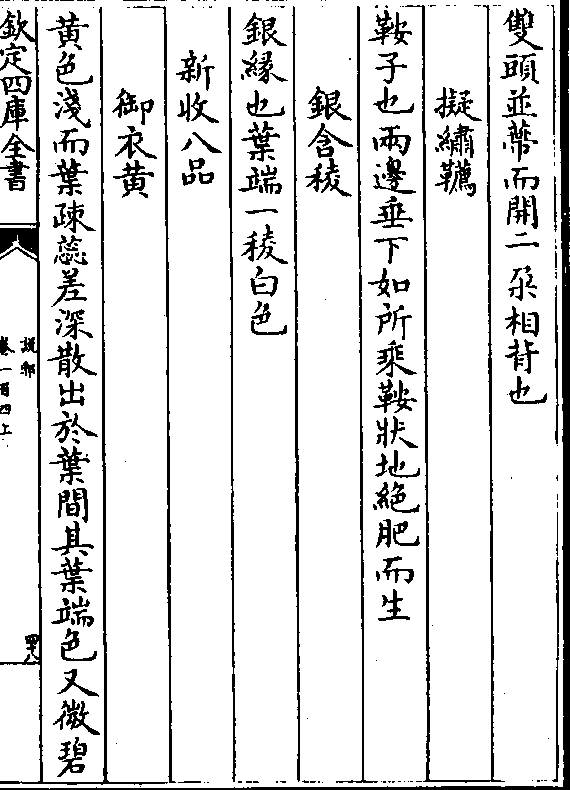 雙頭並蔕而開二朶相背也
擬繡韉
鞍子也兩邊垂下如所乘鞍狀地絶肥而生
銀含稜
銀縁也葉端一稜白色
新收八品
御衣黃
黃色淺而葉疎蕊差深散出於葉間其葉端色又微碧
欽定四庫全書
說郛
卷一百四上
四十八